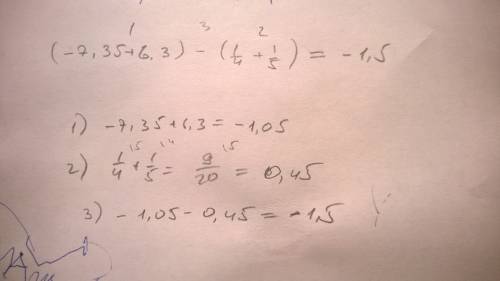 1 3 2
(-7,35+6,3) - (1/4 + 1/5) = -1,5
1) -7,35+6,3 = -1,05
2) 1/4 \5 + 1/5 \4 = 9/20 \5 = 0,45
3) -1,05 - 0,45 = -1,5